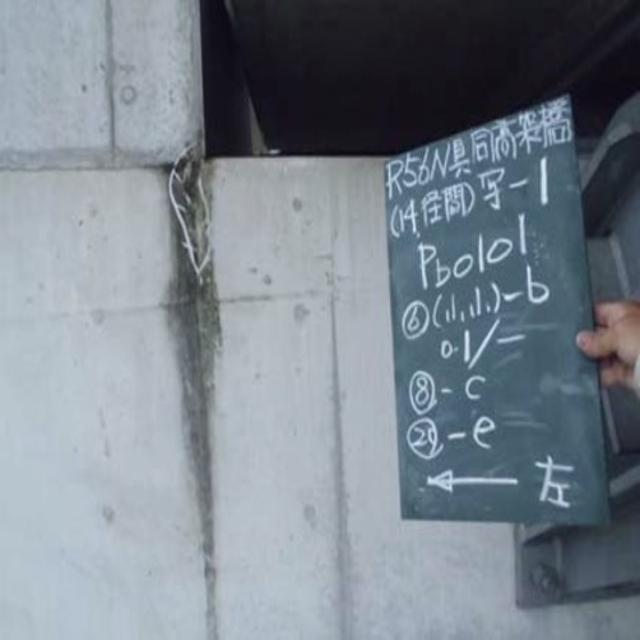 R56N具同高架橋
(14径間) 写-1
Pb0101
⑥(1,1,1,)-b
0.1/-
⑧-c
⑳-e
← 左